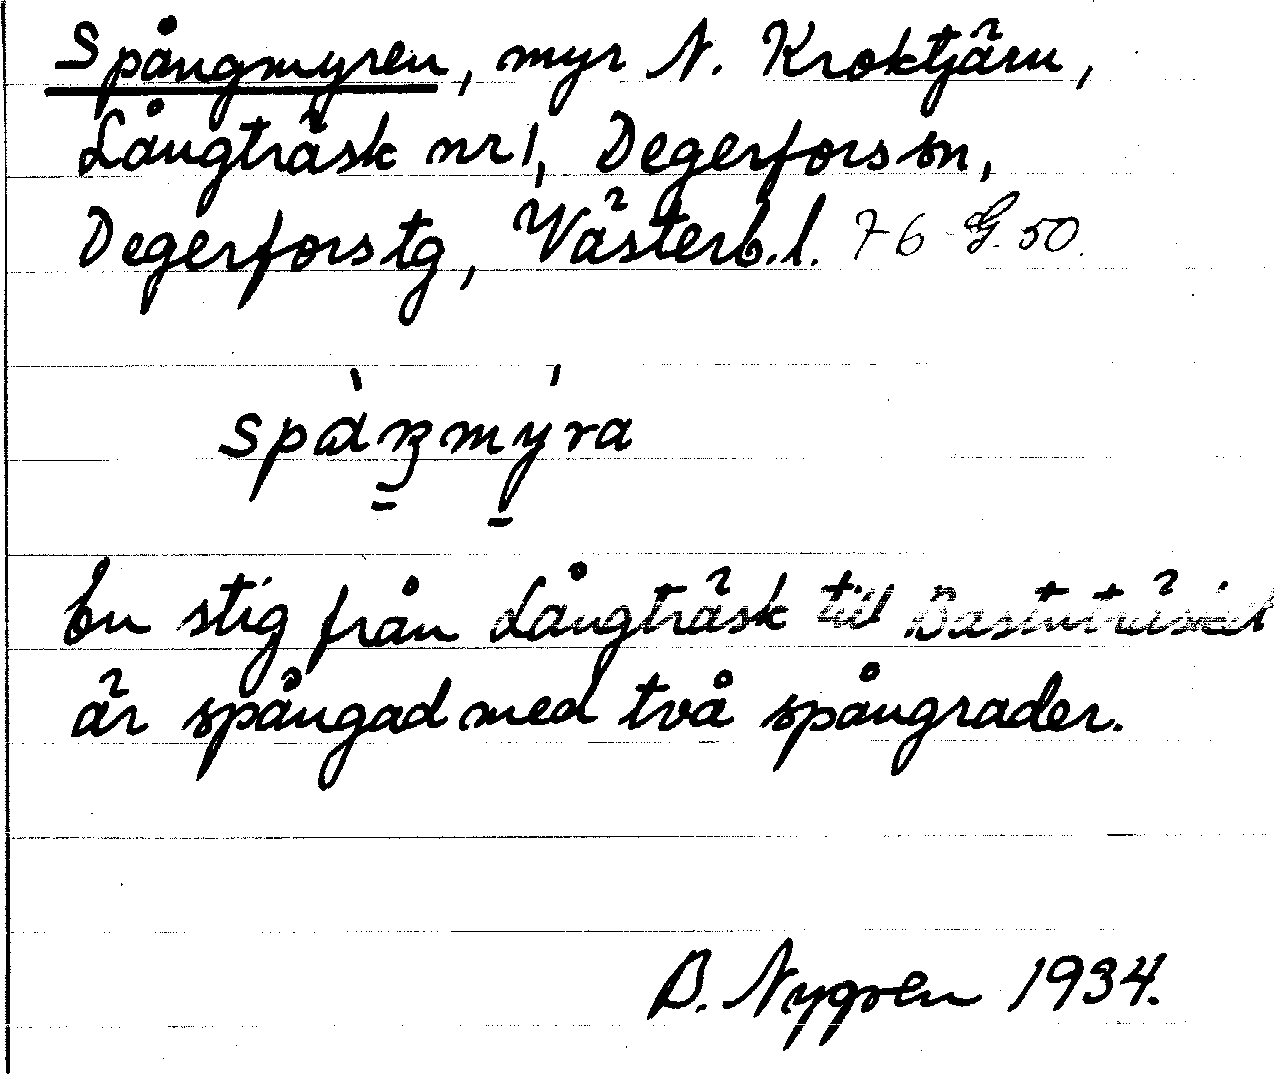 Spångmyren, myr N. Kroktjärn,
Långträsk nr 1, Degerfors sn,
Degerfors tg, Västerb. l. 76 G. 50.
spåŋmýra
En stig från Långträsk till Bastuträsket
är spångad med två spångrader.
B. Nygren 1934.